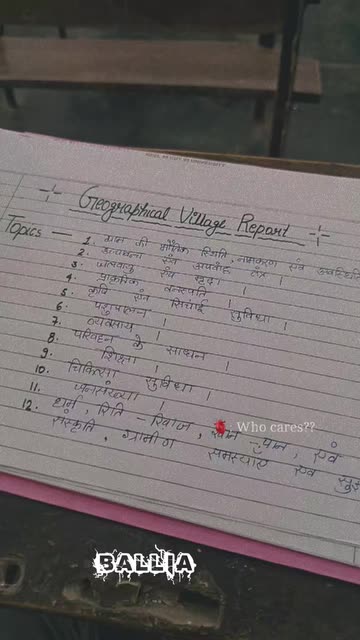 Geographical Village Report
Topics —
1. ग्राम की भौतिक स्थिति, नामकरण एवं अवस्थिति
2. उच्चावच एवं अपवाह तंत्र
3. जलवायु एवं मृदा ।
4. प्राकृतिक वनस्पति ।
5. कृषि एवं सिंचाई सुविधा ।
6. पशुपालन ।
7. व्यवसाय ।
8. परिवहन के साधन ।
9. शिक्षा ।
10. चिकित्सा सुविधा ।
11. जनसंख्या ।
12. धर्म, रिति-रिवाज, खान-पान, एवं
संस्कृति, ग्रामीण समस्याएं एवं
Who cares??
BALLIA